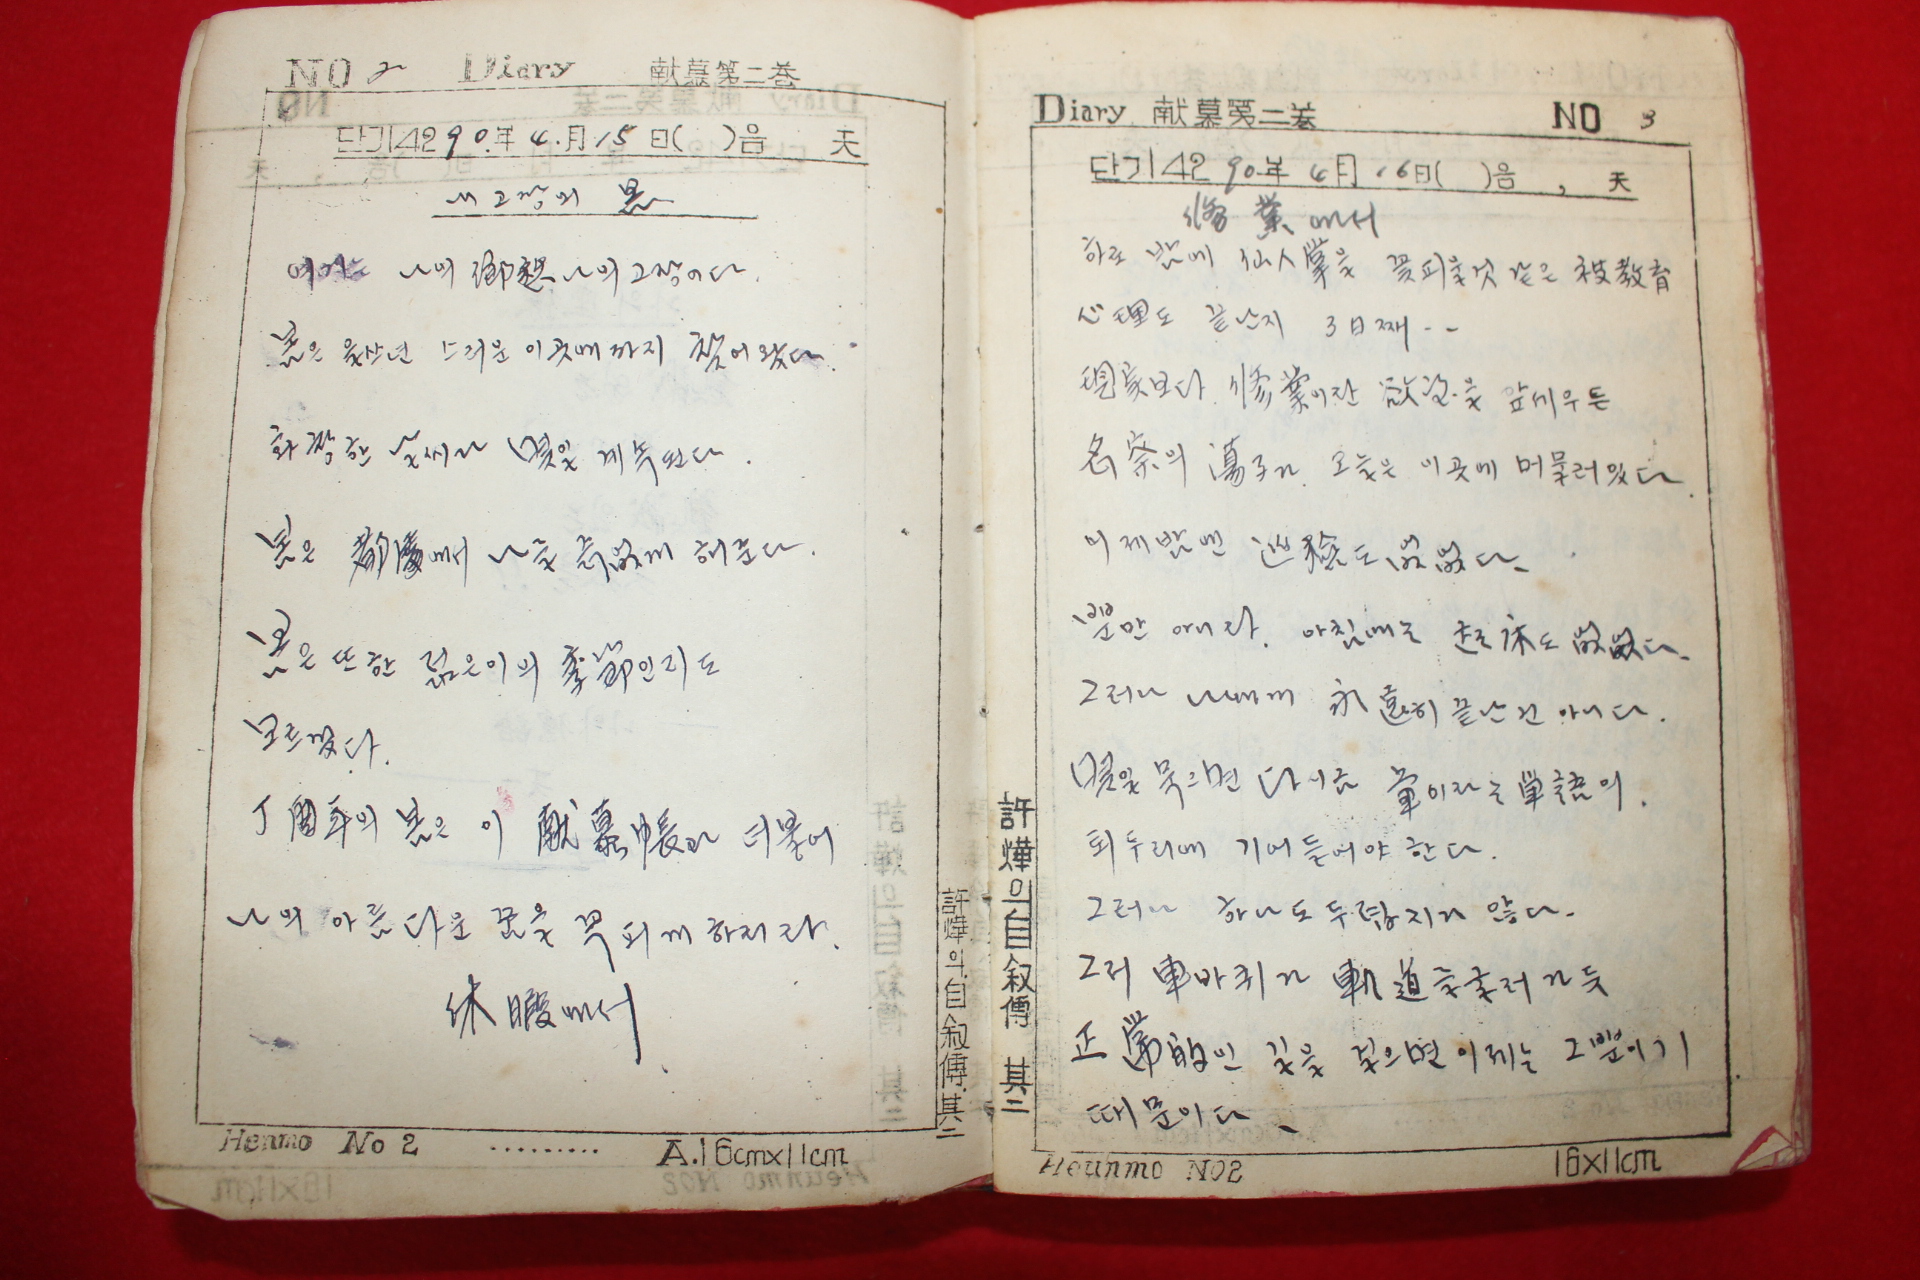 NO 2 Diary 献慕第二巻
단기4290.年 4.月 15日( )음 天
내 고장의 봄
여기는 나의 鄕愁 나의 고장이다.
봄은 이곳에까지 찾어왔다.
화창한 날씨가 몇일 계속된다.
봄은 에서 나를 해준다.
봄은 또한 젊은이의 季節인지도
모르겠다.
丁酉年의 봄은 이 献慕帳과 더불어
나의 아름다운 꿈을 꽃피게 하저라.
休暇에서
許燁의 自叙傳 其二
Henmo No 2 ......... A.16cm×11cm
Diary 献慕第二巻 NO 3
단기42 90.年 4月 16日( )음 , 天
修業에서
하로 밤에 仙人掌을 꽃피울것 같은 被教育
心理도 끝난지 3日째 --
現実보다 修業이란 欲望을 앞세우든
의 蕩子가 오늘은 이곳에 머물러있다.
이제밤엔 巡檢도 없었다.
뿐만 아니라. 아침에는 起床도 없었다.
그러나 나에게 永遠히 끝난건 아니다.
몇일 묵으면 다시금 軍이라는 單語의.
퇴두리에 기어들어야 한다.
그러나 하나도 두렵지가 않다.
그저 車바퀴가 軌道를 굴러가듯
正常的인 길을 걸으면 이제는 그뿐이기
때문이다.
許燁의 自叙傳 其二
Heunmo NO2 16×11cm